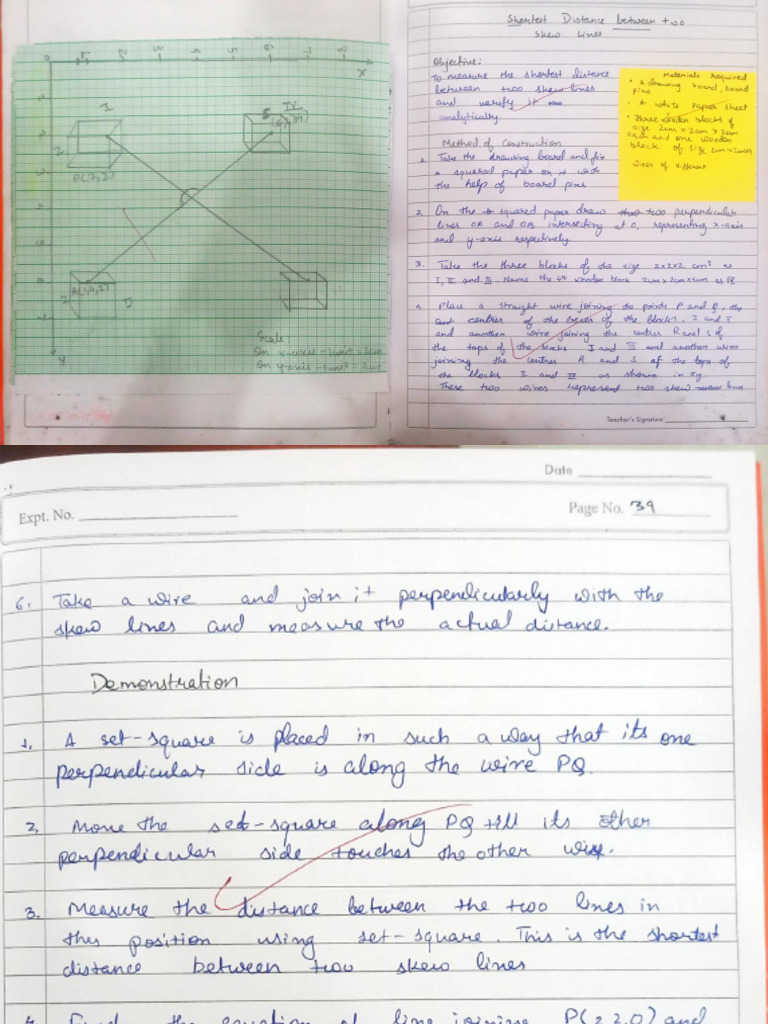 Shortest Distance between two
Skew Lines
Objective:
To measure the shortest distance
between two skew lines
and verify it
analytically.
Materials required
• A drawing board, board
pins
• A white paper sheet
• Three wooden blocks of
size 2cm x 2cm x 2cm
each and one wooden
block of size 2cm x
wires of different
Method of Construction
1. Take the drawing board and fix
a squared paper on it with
the help of board pins
2. On the squared paper draw two perpendicular
lines OA and OB intersecting at O, representing x-axis
and y-axis respectively
3. Take the three blocks of the size 2x2x2 cm³ as
I, II and III. Name the 4th wooden block 2cmx2cmx4cm as IV
4. Place a straight wire joining the points P and Q, the
centres of the bases of the blocks. I and
and another wire joining the centres R and S of
the tops of the blocks I and III and another wire
joining the centres R and S of the tops of
the blocks II and IV as shown in fig
These two wires represent two skew lines
Teacher's Signature
O
X
Y
I
P(2,2)
IV
S
II
Scale:
On x-axis - 1unit =
On y-axis - 1unit -
Date
Expt. No.
Page No. 39
6. Take a wire and join it perpendicularly with the
skew lines and measure the actual distance.
Demonstration
1. A set-square is placed in such a way that its one
perpendicular side is along the wire PQ.
2. Move the set-square along PQ till its other
perpendicular side touches the other wire.
3. Measure the distance between the two lines in
this position using set-square. This is the shortest
distance between two skew lines
4. Find the equation of line joining P(2,2,0) and